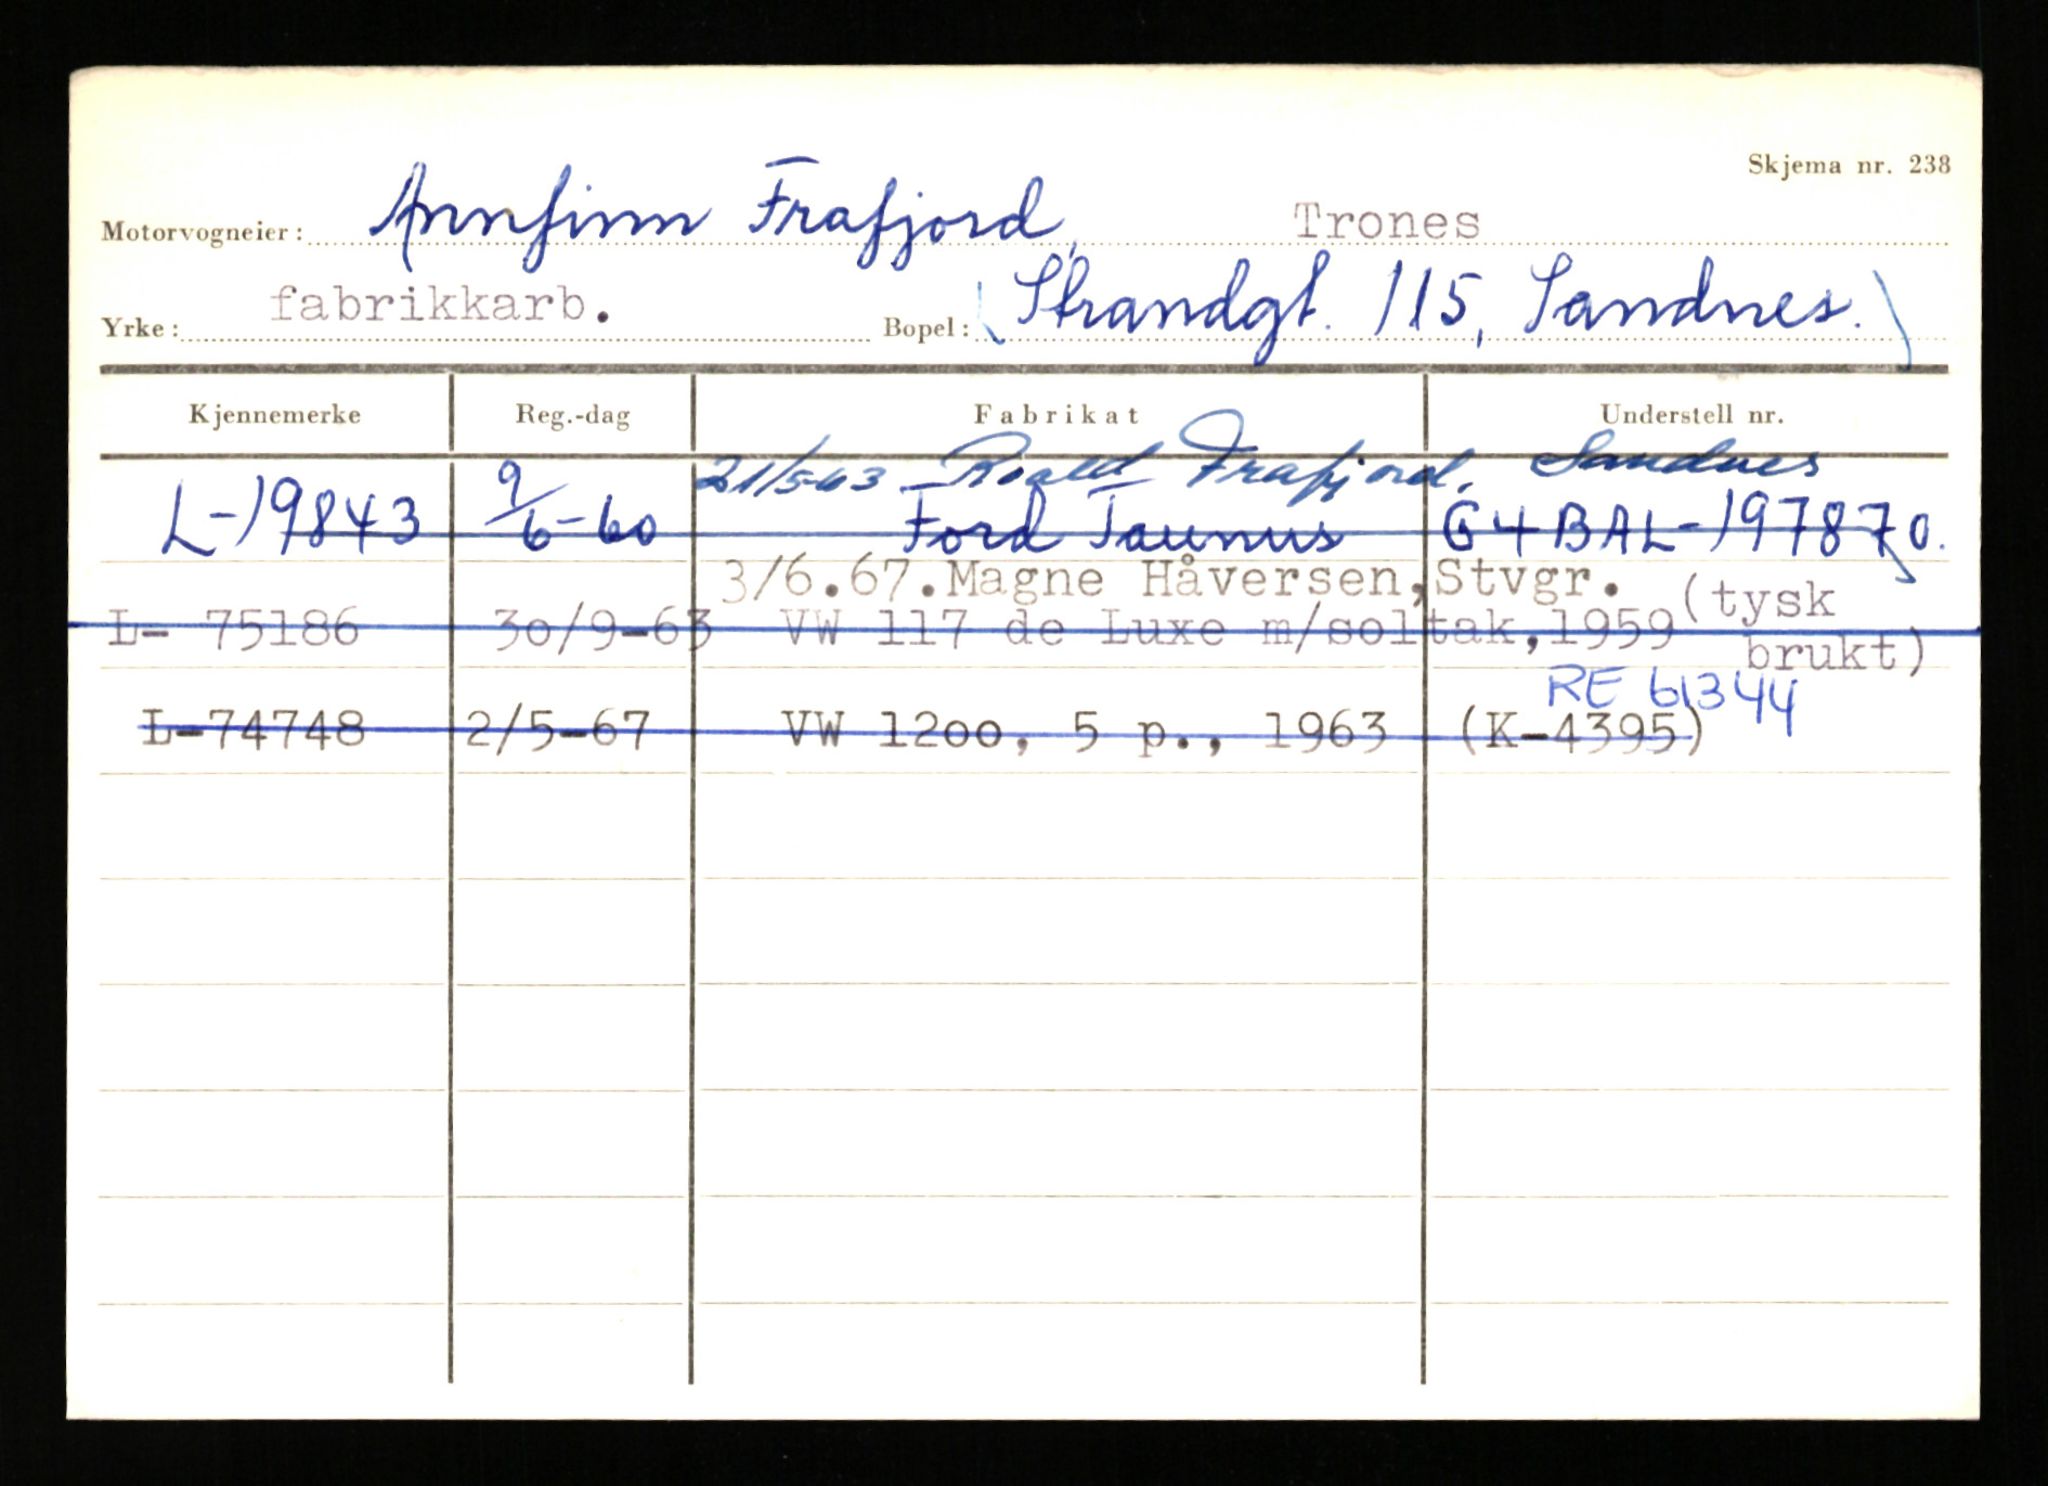 Skjema nr. 238
Motorvogneier: Annfinn Frafjord, Trones
Yrke: fabrikkarb. Bopel: (Strandgt. 115, Sandnes.)
Kjennemerke Reg.-dag Fabrikat Understell nr.
21/5-63 Roald Frafjord, Sandnes
L-19843 9/6-60 Ford Taunus G4BAL-197870.
3/6.67. Magne Håversen, Stvgr.
L- 75186 30/9-63 VW 117 de Luxe m/soltak, 1959 (tysk
brukt)
RE 61344
L-74748 2/5-67 VW 12oo, 5 p., 1963 (K-4395)